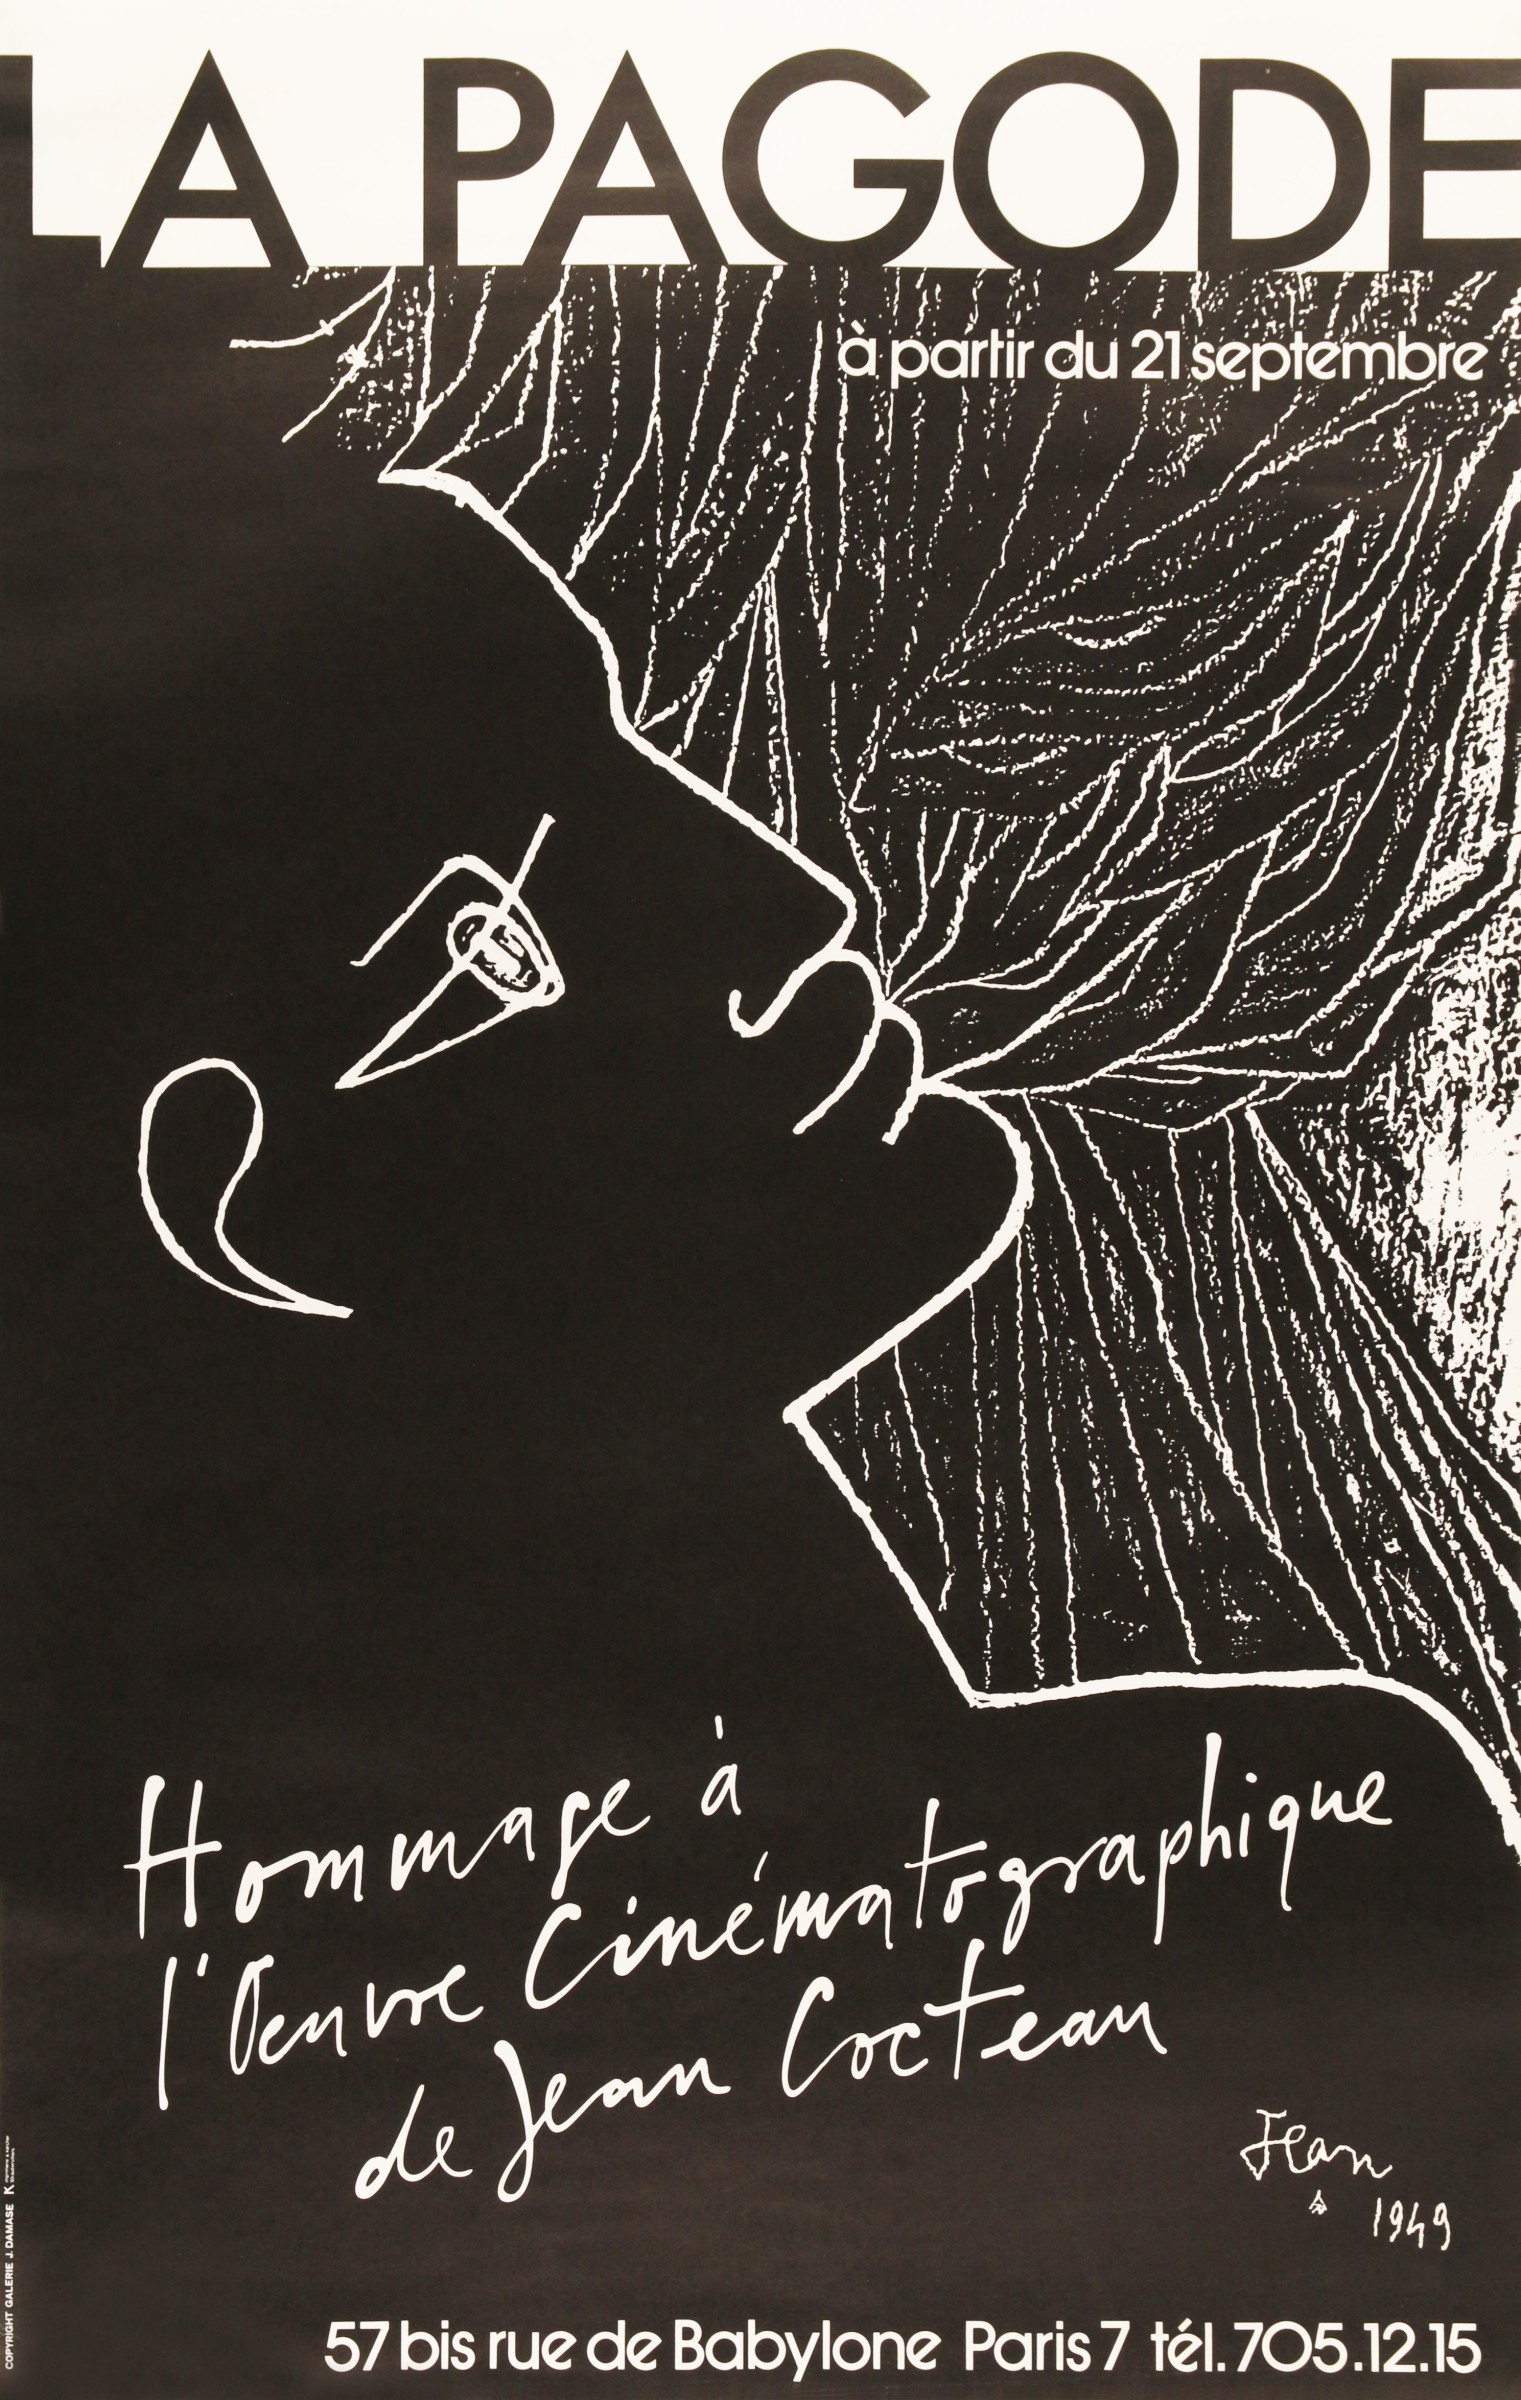 LA PAGODE
à partir du 21 septembre
Hommage à
l'Oeuvre Cinématographique
de Jean Cocteau
Jean
1949
57 bis rue de Babylone Paris 7 tél. 705.12.15
COPYRIGHT GALERIE J. DAMASE